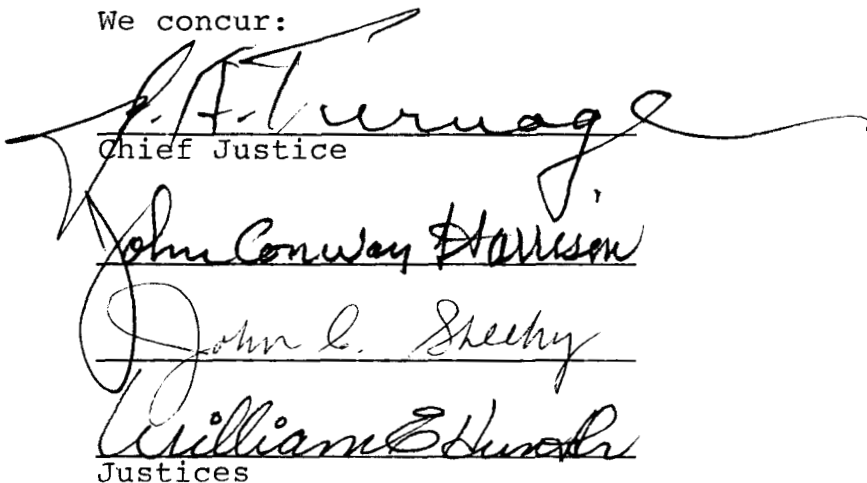 We concur:
J. A. Turnage
Chief Justice
John Conway Harrison
John C. Sheehy
William E Hunt Jr
Justices